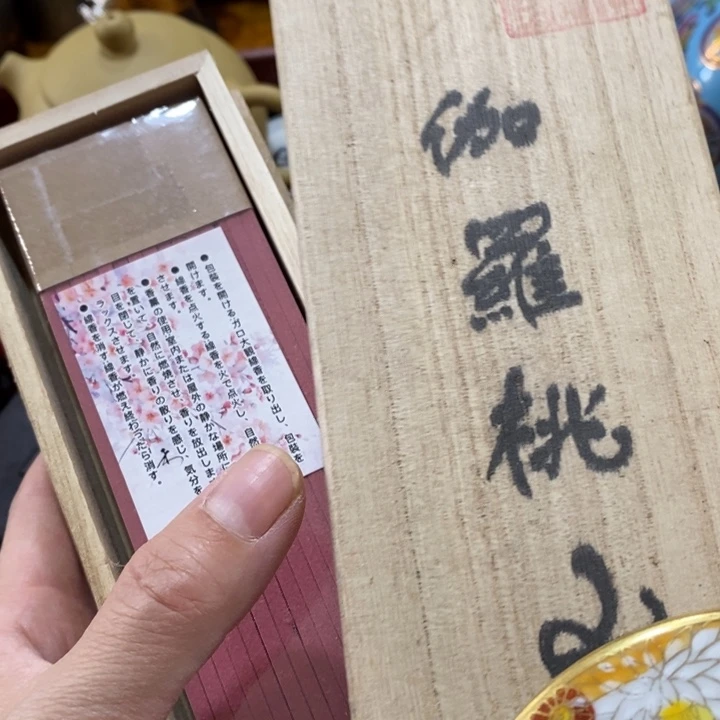 伽羅桃山
●包装を開けるガロ大観線香を取り出し、包装を
開けます。
●線香を点火する線香を火で点火し、自然
させます。
●香薫の使用室内または屋外の静かな場所に
を置いて、自然に燃焼させ、香りを放出しま
目を閉じて、静かに香りの散りを感じ、気分を
ラックスさせます。
●線香を消す線香が燃え終わったら消す。